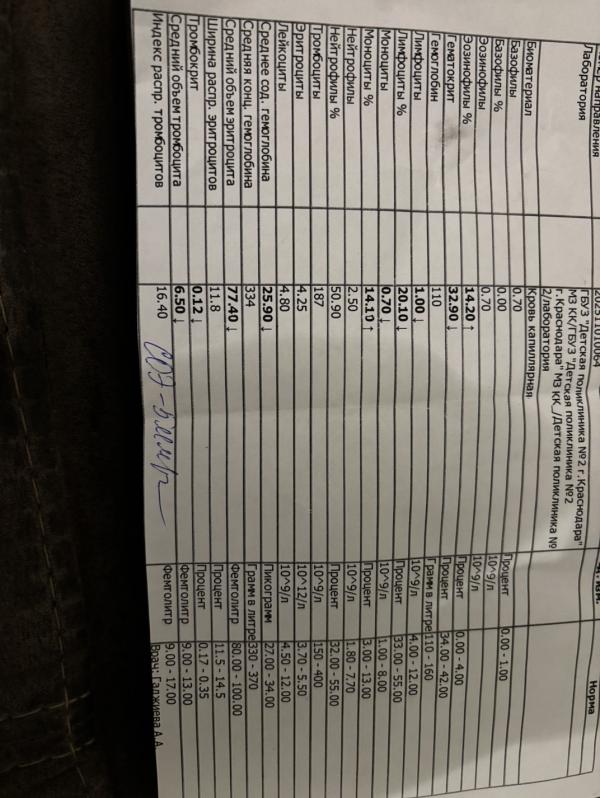 направления
Лаборатория ГБУЗ "Детская поликлиника №2 г.Краснодара"
МЗ КК/ГБУЗ "Детская поликлиника №2
г.Краснодара" МЗ КК_/Детская поликлиника №
2/лаборатория
Норма
Биоматериал Кровь капиллярная
Базофилы 0.70 Процент 0.00 - 1.00
Базофилы % 0.00 10^9/л
Эозинофилы 0.70 10^9/л
Эозинофилы % 14.20 ↑ Процент 0.00 - 4.00
Гематокрит 32.90 ↓ Процент 34.00 - 42.00
Гемоглобин 110 Грамм в литре 110 - 160
Лимфоциты 1.00 ↓ 10^9/л 4.00 - 12.00
Лимфоциты % 20.10 ↓ Процент 33.00 - 55.00
Моноциты 0.70 ↓ 10^9/л 1.00 - 8.00
Моноциты % 14.10 ↑ Процент 3.00 - 13.00
Нейтрофилы 2.50 10^9/л 1.80 - 7.70
Нейтрофилы % 50.90 Процент 32.00 - 55.00
Тромбоциты 187 10^9/л 150 - 400
Эритроциты 4.25 10^12/л 3.70 - 5.50
Лейкоциты 4.80 10^9/л 4.50 - 12.00
Среднее сод. гемоглобина 25.90 ↓ Пикограмм 27.00 - 34.00
Средняя конц. гемоглобина 334 Грамм в литре 330 - 370
Средний объем эритроцита 77.40 ↓ Фемтолитр 80.00 - 100.00
Ширина распр. эритроцитов 11.8 Процент 11.5 - 14.5
Тромбокрит 0.12 ↓ Процент 0.17 - 0.35
Средний объем тромбоцита 6.50 ↓ Фемтолитр 9.00 - 13.00
Индекс распр. тромбоцитов 16.40 Фемтолитр 9.00 - 17.00
СОЭ - 5мм/г
Врач: Гаджиева А.А.